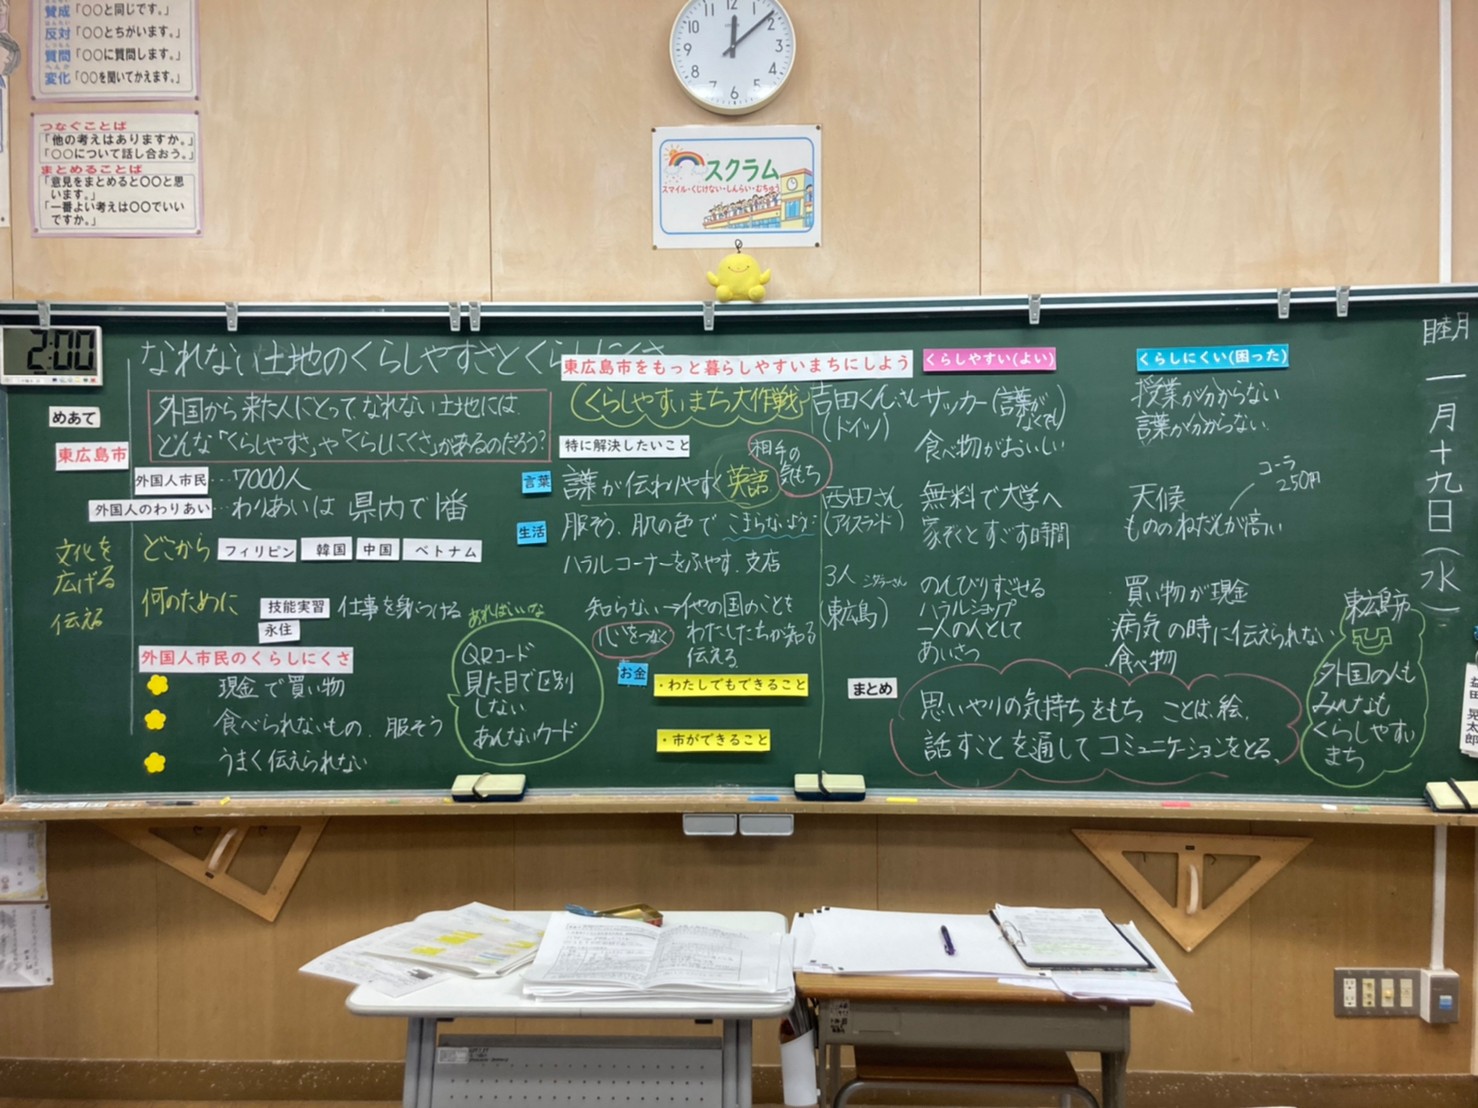 賛成「〇〇と同じです。」
反対「〇〇とちがいます。」
質問「〇〇に質問します。」
変化「〇〇を聞いてかえます。」
つなぐことば
「他の考えはありますか。」
「〇〇について話し合おう。」
まとめることば
「意見をまとめると〇〇と思
います。」
「一番よい考えは〇〇でいい
ですか。」
10 11 12 1 2 3 4 5 6 7 8 9
スクラム
スマイル・くじけない・しんらい・むちゅう
2:00
睦月
一月十九日(水)
益田 晃太郎
なれない土地のくらしやすさとくらしにくさ
めあて
外国から来た人にとってなれない土地には
どんな「くらしやすさ」や「くらしにくさ」があるのだろう?
東広島市
外国人市民…7000人
外国人のわりあい…わりあいは 県内で1番
文化を
広げる
伝える
どこから フィリピン 韓国 中国 ベトナム
何のために 技能実習 仕事を身につける
永住
外国人市民のくらしにくさ
現金で買い物
食べられないもの、服そう
うまく伝えられない
あればいいな
QRコード
見た目で区別
しない
あんないカード
東広島市をもっと暮らしやすいまちにしよう
(くらしやすいまち大作戦)
特に解決したいこと
相手の
気もち
言葉
言葉が伝わりやすく 英語
生活
服そう、肌の色で こまらないよう
ハラルコーナーをふやす、支店
知らない→他の国のことを
心をつなぐ わたしたちが知る
伝える
お金
・わたしでもできること
・市ができること
くらしやすい(よい)
くらしにくい(困った)
吉田くんさん
(ドイツ)
サッカー(言葉が
なくても)
食べ物がおいしい
授業が分からない
言葉が分からない
西田さん
(アイスランド)
無料で大学へ
家ぞくとすごす時間
天候
もののねだんが高い
コーラ
250円
3人
(東広島)
のんびりすごせる
ハラルショップ
一人の人として
あいさつ
買い物が現金
病気の時に伝えられない
食べ物
まとめ
思いやりの気持ちをもち ことば、絵、
話すことを通してコミュニケーションをとる、
東広島市
外国の人も
みんなも
くらしやすい
まち